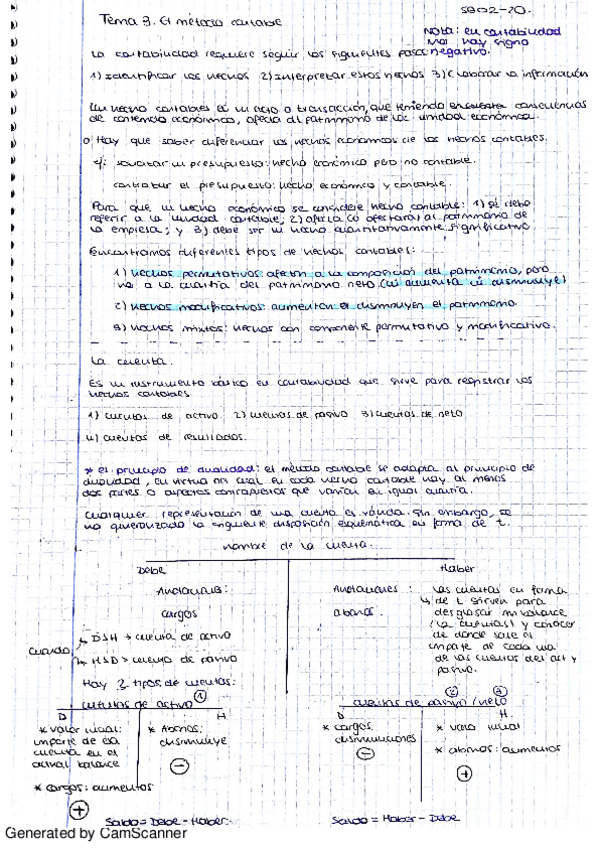 Tema 3. El método contable
5B02-20.
Nota: en contabilidad
no hay signo
negativo.
La contabilidad requiere seguir los siguientes pasos:
1) Identificar los hechos 2) Interpretar estos hechos 3) Elaborar la información
Un hecho contable es un acto o transacción, que teniendo consecuencias
de contenido económico, afecta al patrimonio de la unidad económica.
o Hay que saber diferenciar los hechos económicos de los hechos contables.
ej: solicitar un presupuesto: hecho económico pero no contable.
contratar el presupuesto: hecho económico y contable.
Para que un hecho económico se considere hecho contable: 1) se debe
referir a la unidad contable; 2) afecta (o afectará) al patrimonio de
la empresa; y 3) debe ser un hecho cuantitativamente significativo
Encontramos diferentes tipos de hechos contables:
1) Hechos permutativos: afectan a la composición del patrimonio, pero
no a la cuantía del patrimonio neto (ni aumenta ni disminuye)
2) Hechos modificativos: aumentan o disminuyen el patrimonio
3) Hechos mixtos: hechos con componente permutativo y modificativo.
La cuenta.
Es un instrumento básico en contabilidad que sirve para registrar los
hechos contables
1) cuentas de activo 2) cuentas de pasivo 3) cuentas de neto
4) cuentas de resultados.
* el principio de dualidad: el método contable se adapta al principio de
dualidad, en virtud del cual en cada hecho contable hay al menos
dos partes o aspectos contrapuestos que varían en igual cuantía.
Cualquier representación de una cuenta es válida. Sin embargo, se
ha generalizado la siguiente disposición esquemática en forma de t.
nombre de la cuenta.
Debe
Haber
Anotaciones:
cargos
Anotaciones:
abonos.
Las cuentas en forma
de t sirven para
desglosar un balance
(las cuentas) y conocer
de dónde sale el
importe de cada una
de las cuentas del act y
pasivo.
Cuando
D>H → cuenta de activo
H>D → cuenta de pasivo
Hay 3 tipos de cuentas:
cuentas de activo 1
D H
* valor inicial:
importe de esa
cuenta en el
actual balance
* cargos: aumentos
+
* Abonos:
disminuye
-
Saldo = Debe - Haber.
cuentas de pasivo / neto
2 3
D H.
* cargos:
disminuciones
-
* valor inicial
* abonos: aumentos
+
Saldo = Haber - Debe
Generated by CamScanner